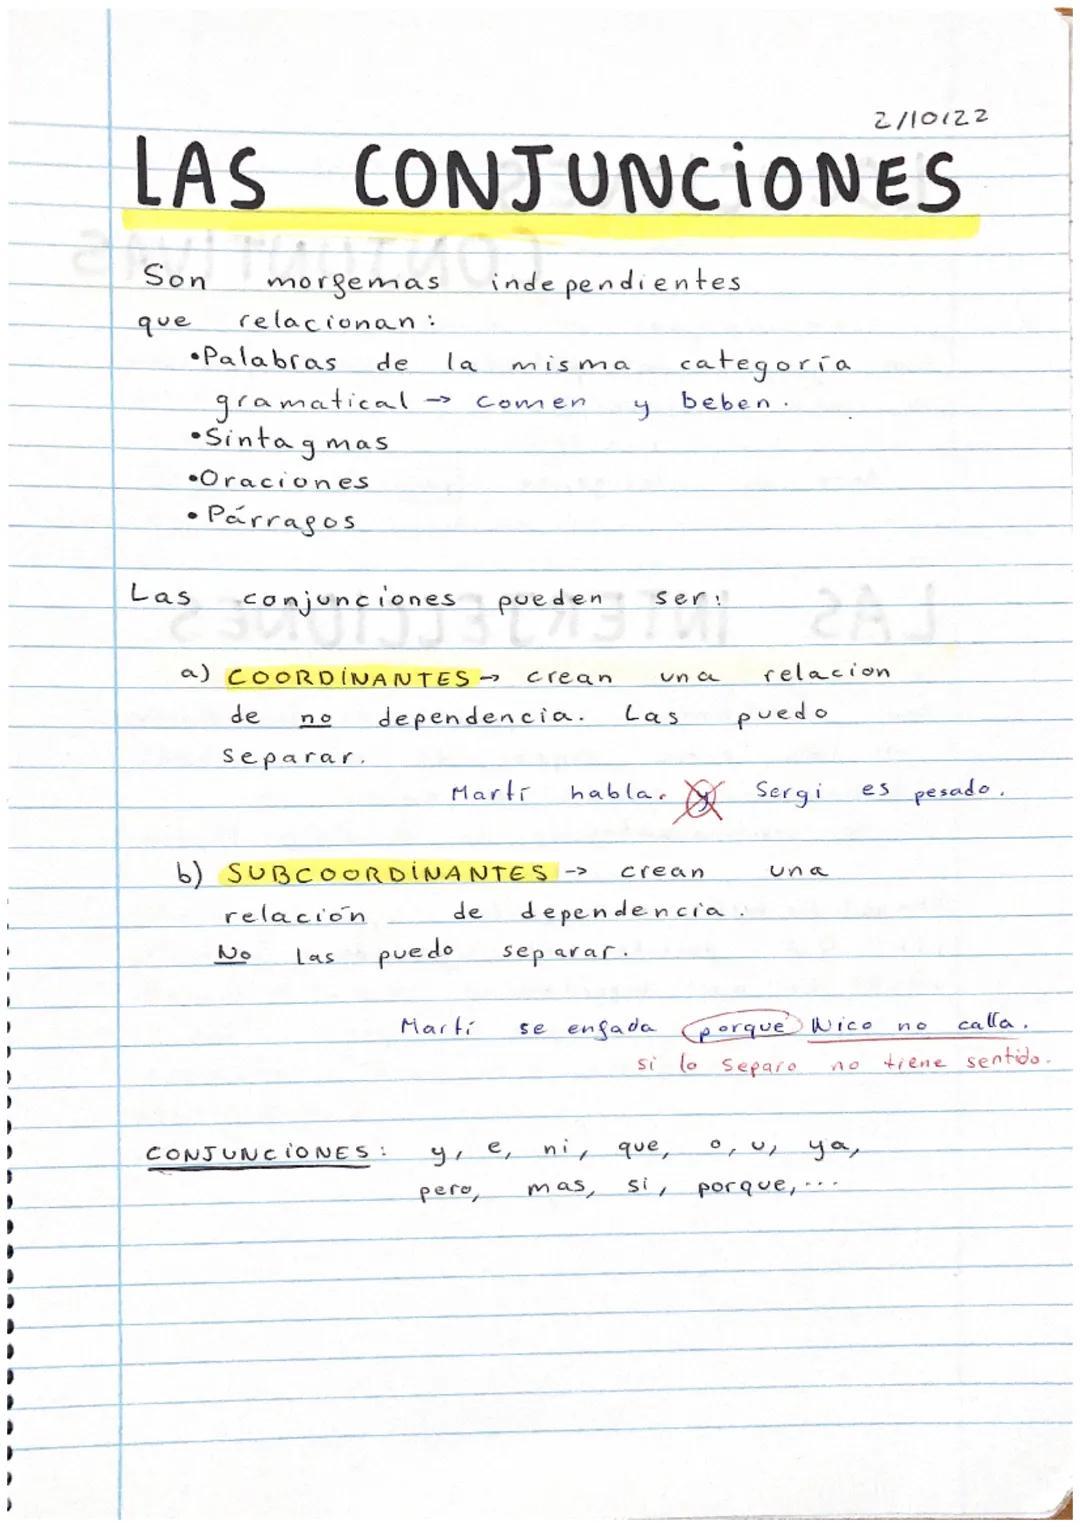 2/10/22
LAS CONJUNCIONES
Son morfemas independientes
que relacionan:
•Palabras de la misma categoría
gramatical → comen y beben.
•Sintagmas
•Oraciones
•Párrafos
Las conjunciones pueden ser:
a) COORDINANTES → crean una relacion
de no dependencia. Las puedo
separar.
Martí habla. y Sergi es pesado.
b) SUBCOORDINANTES -> crean una
relación de dependencia.
No las puedo separar.
Martí se enfada porque Nico no calla.
si lo separo no tiene sentido.
CONJUNCIONES: y, e, ni, que, o, u, ya,
pero, mas, si, porque,...